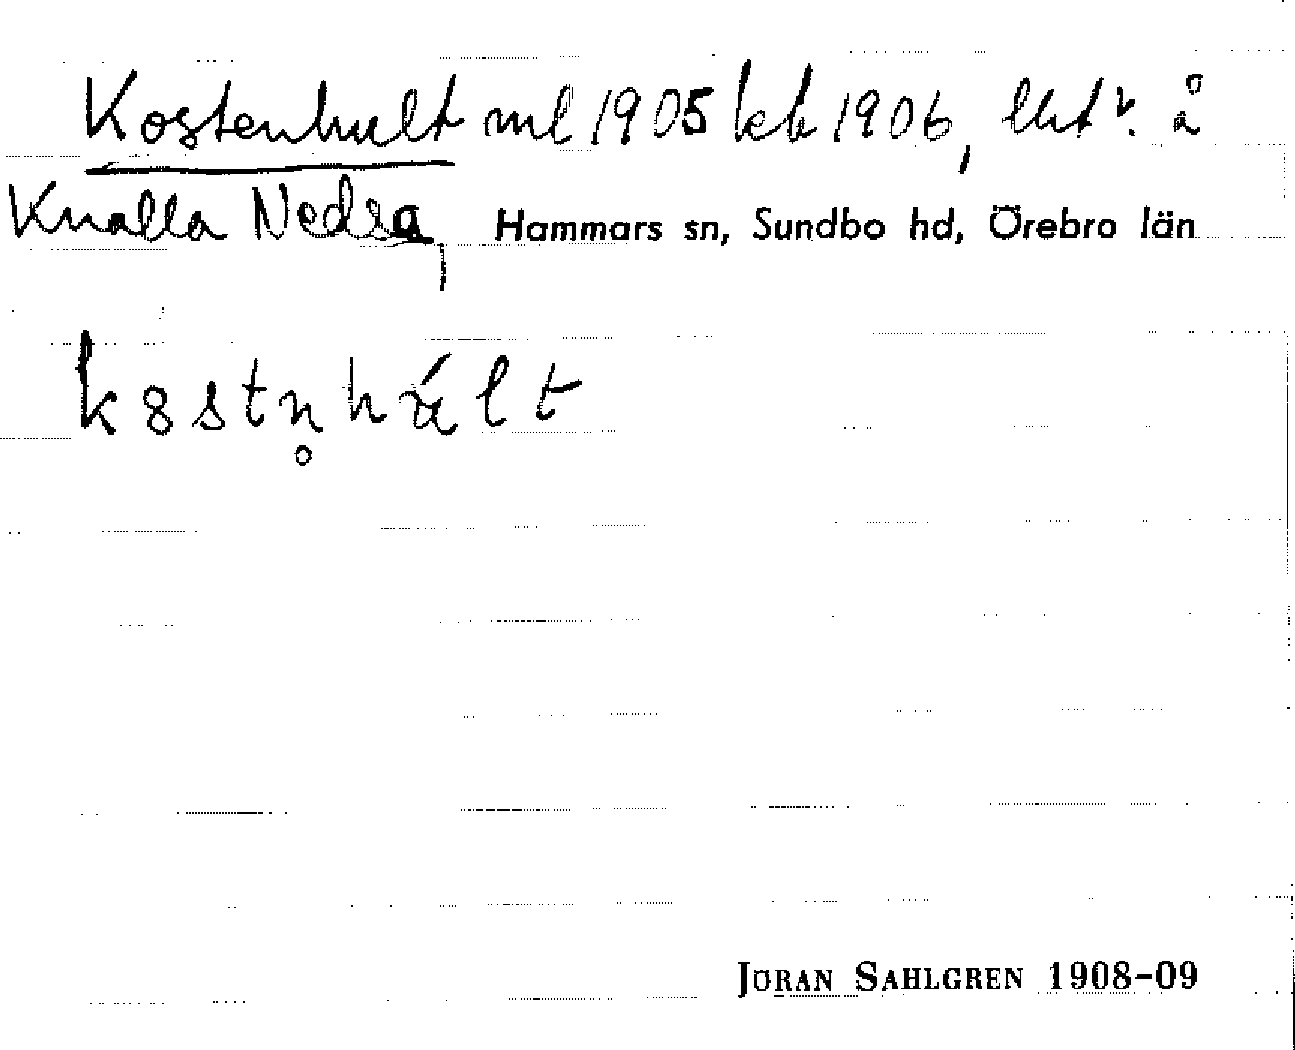 Kostenhult ml 1905 kb 1906, lht v. å
Knalla Nedra, Hammars sn, Sundbo hd, Örebro län
JÖRAN SAHLGREN 1908-09